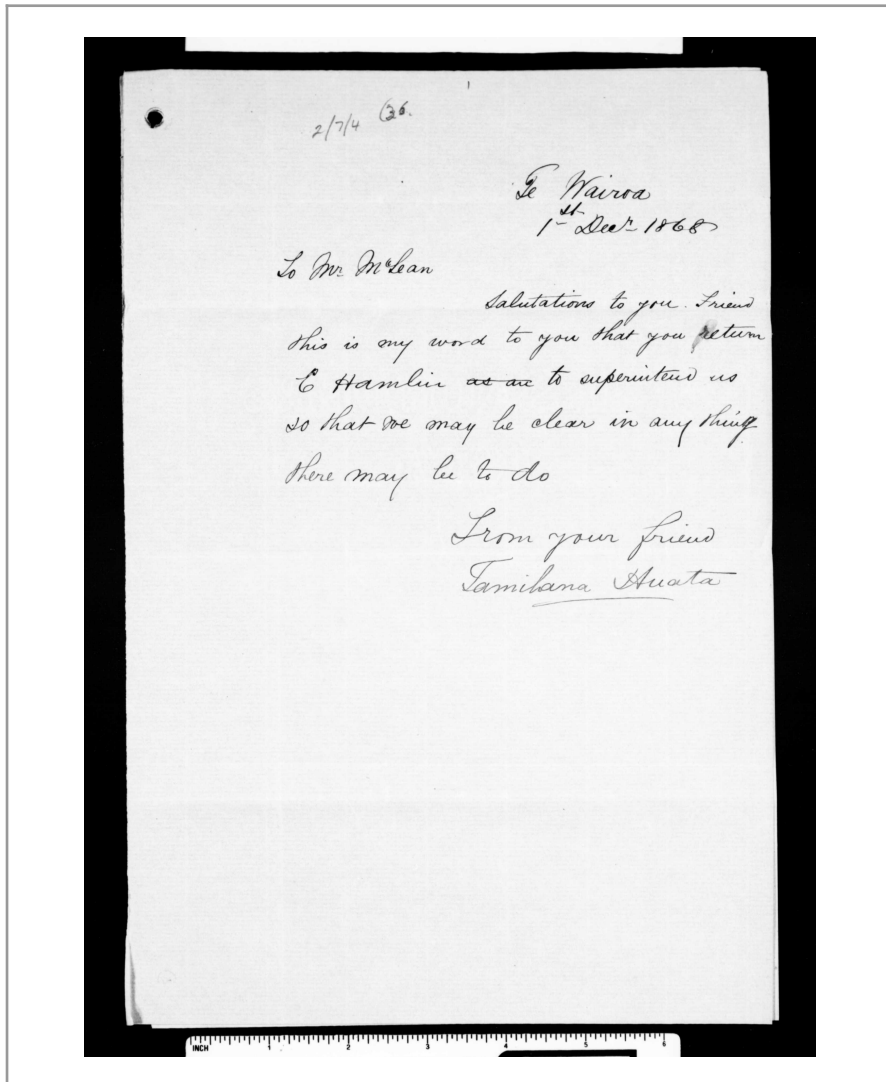 2/7/4 (36.
Te Wairoa
1st Decr 1868
To Mr McLean
Salutations to you. Friend
this is my word to you that you return
E Hamlin as an to superintend us
so that we may be clear in any thing
there may be to do
From your friend
Tamihana Huata
INCH 1 2 3 4 5 6